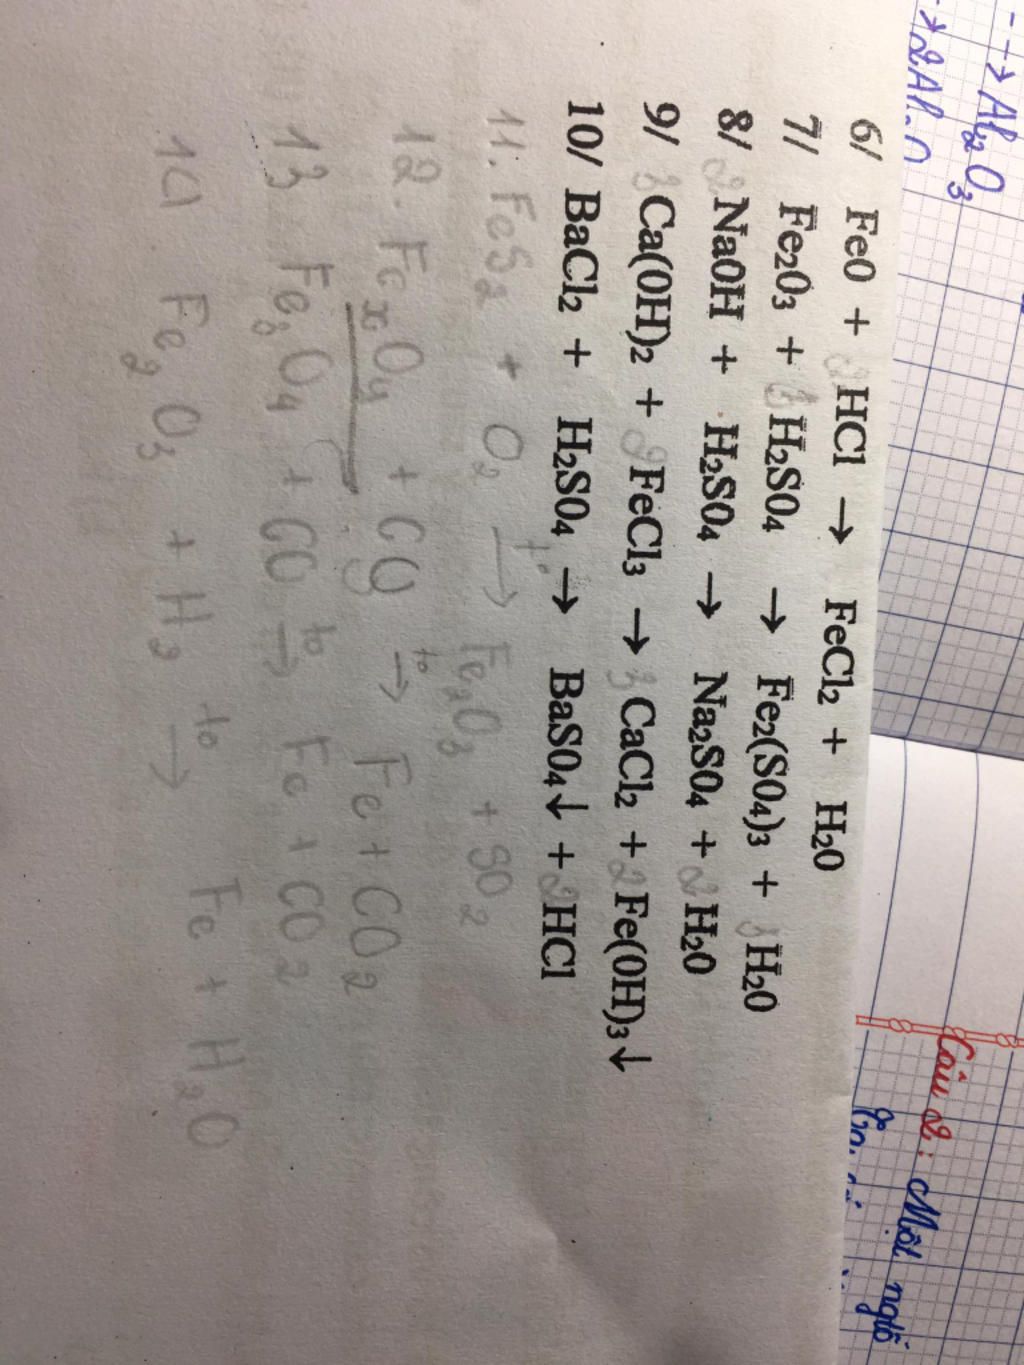 --→ Al2O3
→ 2Al
6/ FeO + 2HCl → FeCl2 + H2O
7/ Fe2O3 + 3H2SO4 → Fe2(SO4)3 + 3H2O
8/ 2NaOH + H2SO4 → Na2SO4 + 2H2O
9/ 3Ca(OH)2 + 2FeCl3 → 3CaCl2 + 2Fe(OH)3↓
10/ BaCl2 + H2SO4 → BaSO4↓ + 2HCl
11. FeS2 + O2 t°→ Fe2O3 + SO2
12. FexO4 + CO to→ Fe + CO2
13 Fe3O4 + CO to→ Fe + CO2
Fe2O3 + H2 to→ Fe + H2O
Câu 2: Một ngtố